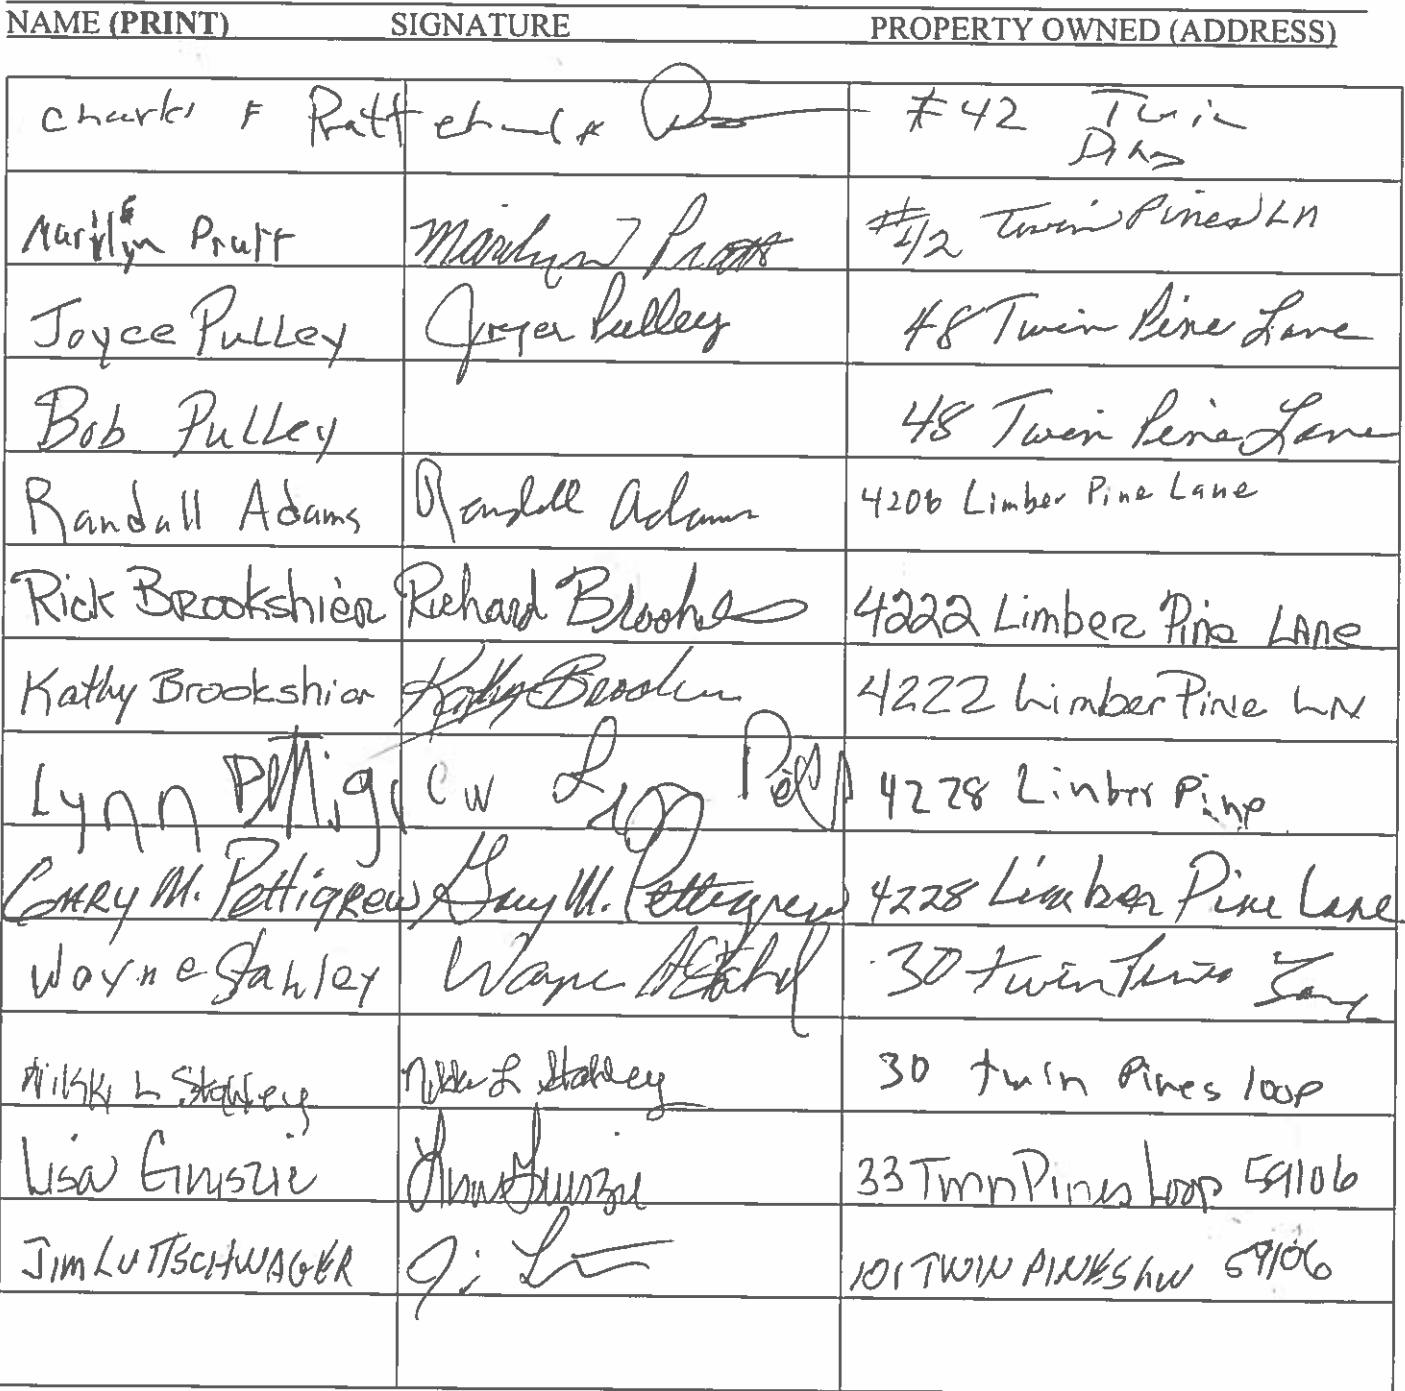 NAME (PRINT) SIGNATURE PROPERTY OWNED (ADDRESS)
Charles F Pratt #42 Twin
Pines
Marilyn Pratt Marilyn Pratt #42 Twin Pines LN
Joyce Pulley Joyce Pulley 48 Twin Pine Lane
Bob Pulley 48 Twin Pine Lane
Randall Adams Randall Adams 4206 Limber Pine Lane
Rick Brookshier Richard 4222 Limber Pine Lane
Kathy Brookshier Kathy 4222 Limber Pine LN
Lynn Pettigrew Lynn 4228 Limber Pine
Gary M. Pettigrew Gary M. Pettigrew 4228 Limber Pine Lane
Wayne Stahley Wayne 30 twin Pines
Nikki L Stahley Nikki L Stahley 30 twin Pines loop
Lisa Lisa 33 Twin Pines Loop 59106
Jim LUTTSCHWAGER Ji 101 TWIN PINES LN 59106